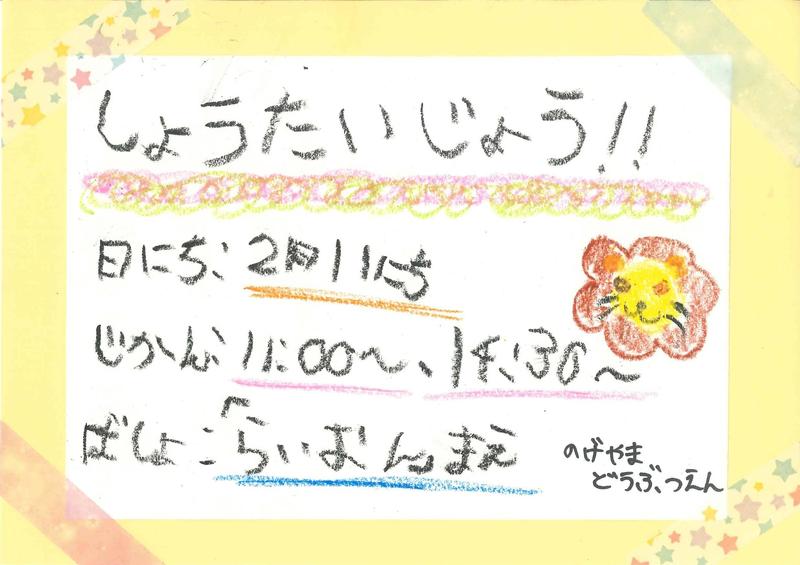 しょうたいじょう!!
日にち:2月11にち
じかん:11:00～、14:30～
ばしょ:「らいおん」まえ
のげやま
どうぶつえん